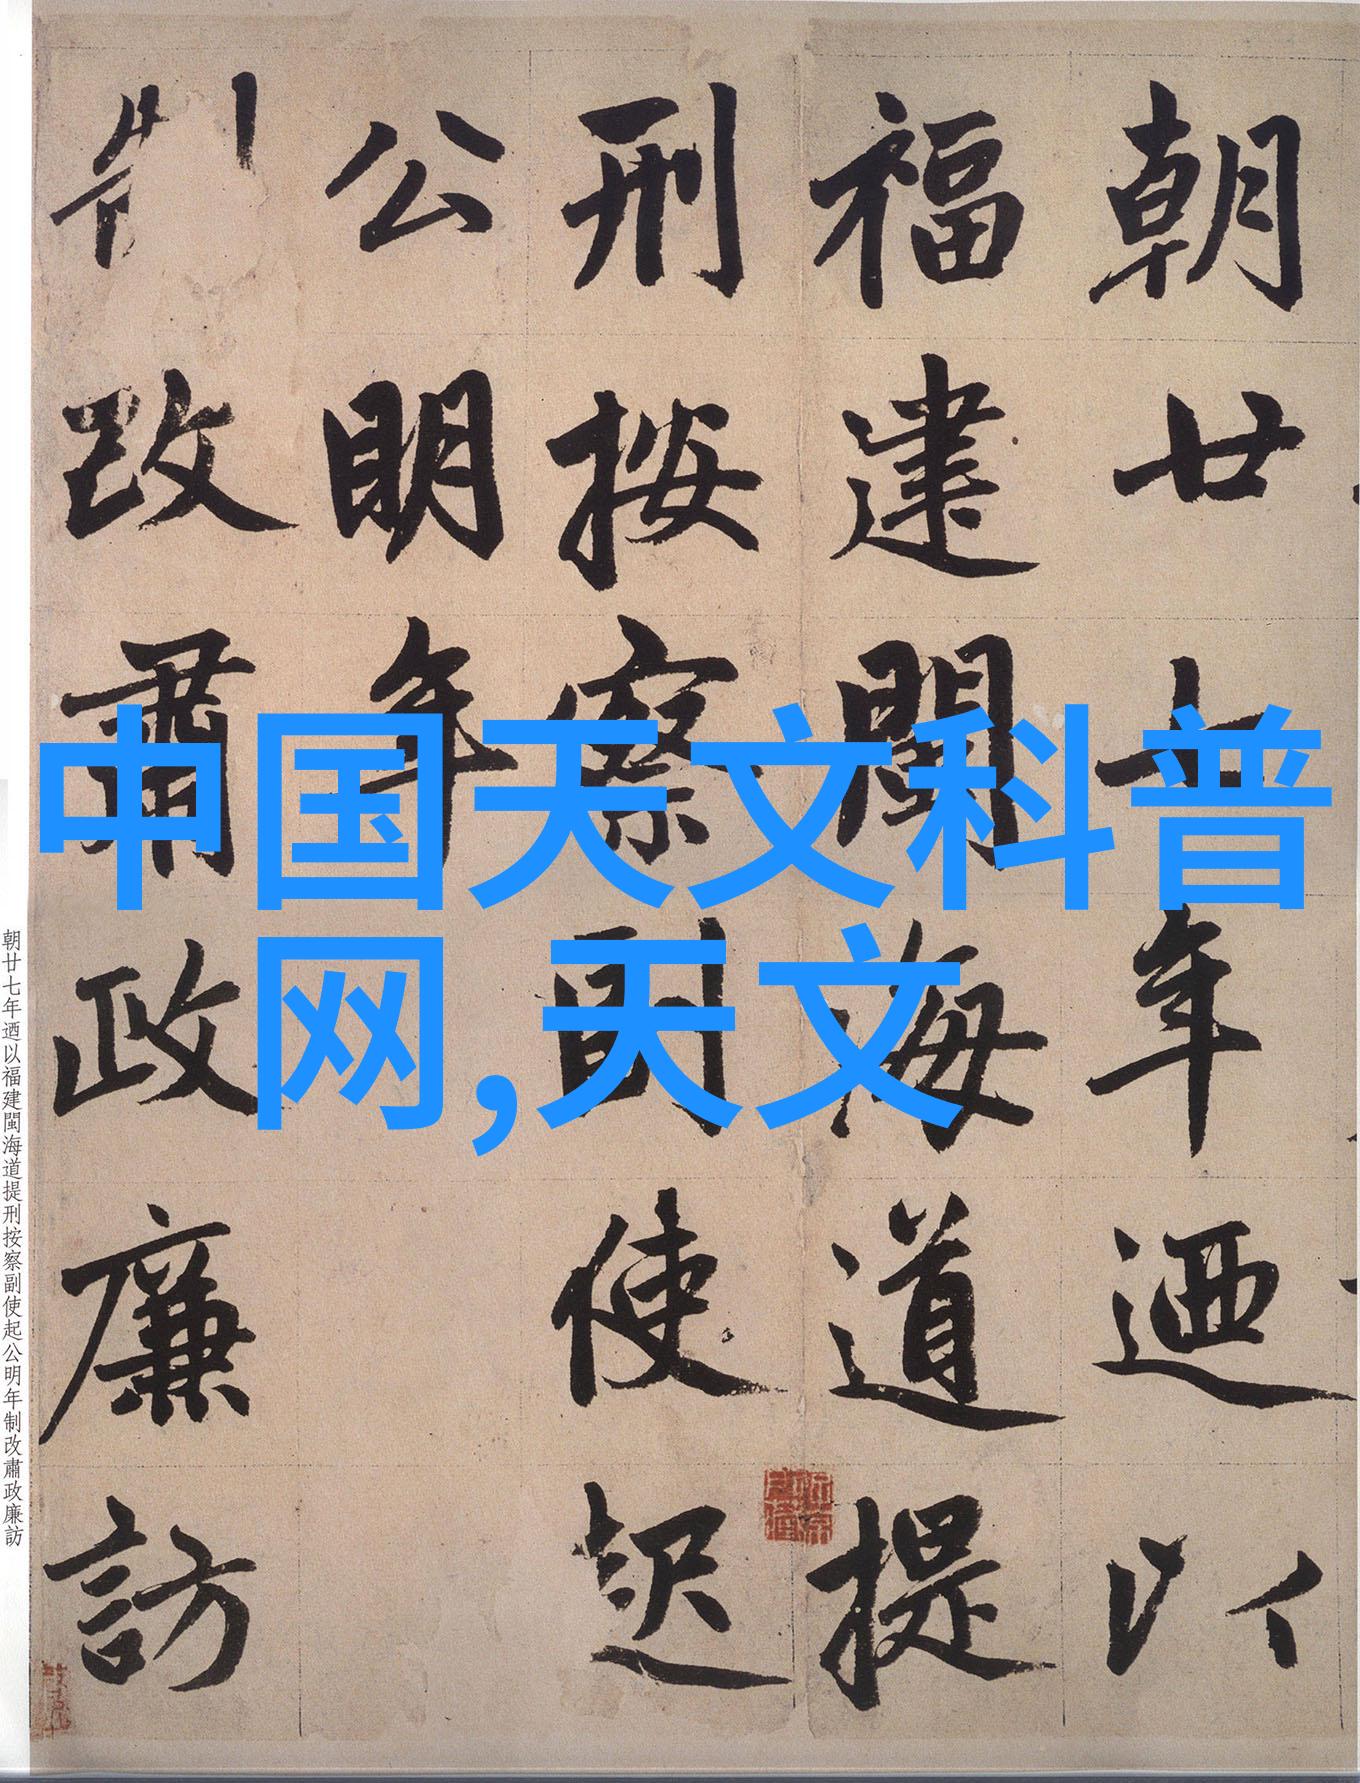 朝廿七年迺以
福建閩海道提
刑按察副使起
公明年
制改肅政廉訪
中国天文科普
网,天文
朝廿七年迺以福建閩海道提刑按察副使起公明年制改肅政廉訪